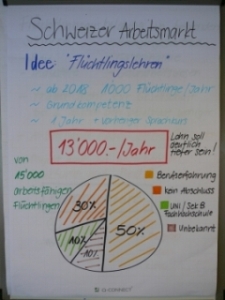 Schweizer Arbeitsmarkt
Idee "Flüchtlingslehren"
~ ab 2018 1000 Flüchtlinge/Jahr
~ Grundkompetenz
~ 1 Jahr + vorheriger Sprachkurs
13'000.-/Jahr
Lohn soll
deutlich
tiefer sein!
von
15'000
arbeitsfähigen
Flüchtlingen
30%
50%
10%
~10%
Berufserfahrung
kein Abschluss
Uni / Sek II
Fachhochschule
Unbekannt